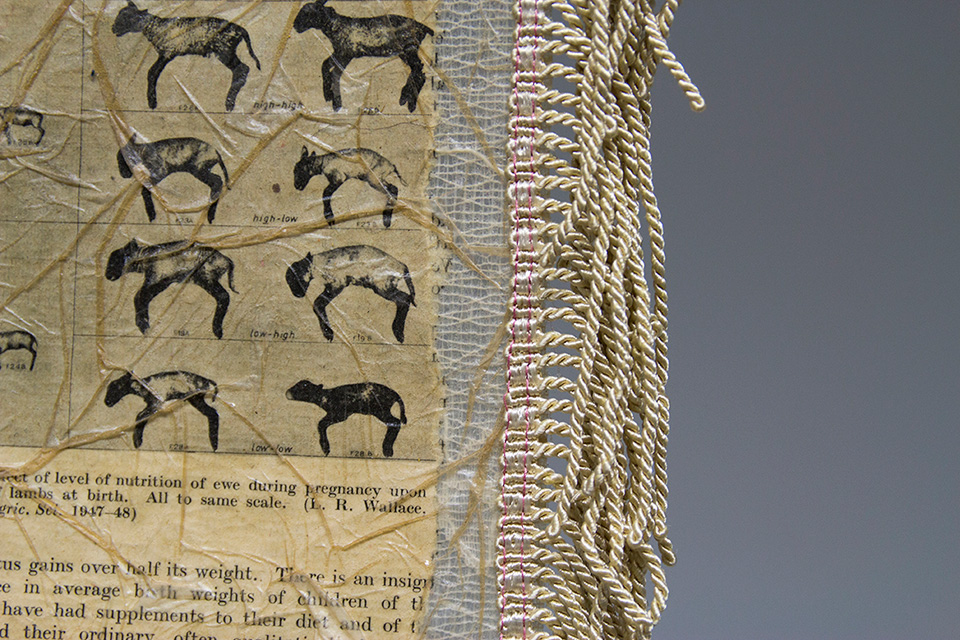 high-high
high-low
low-high
low-low
ect of level of nutrition of ewe during pregnancy upon
lambs at birth. All to same scale. (L. R. Wallace.
gric. Sci. 1947–48)
tus gains over half its weight. There is an insign
ce in average birth weights of children of th
have had supplements to their diet and of t
d their ordinary, often